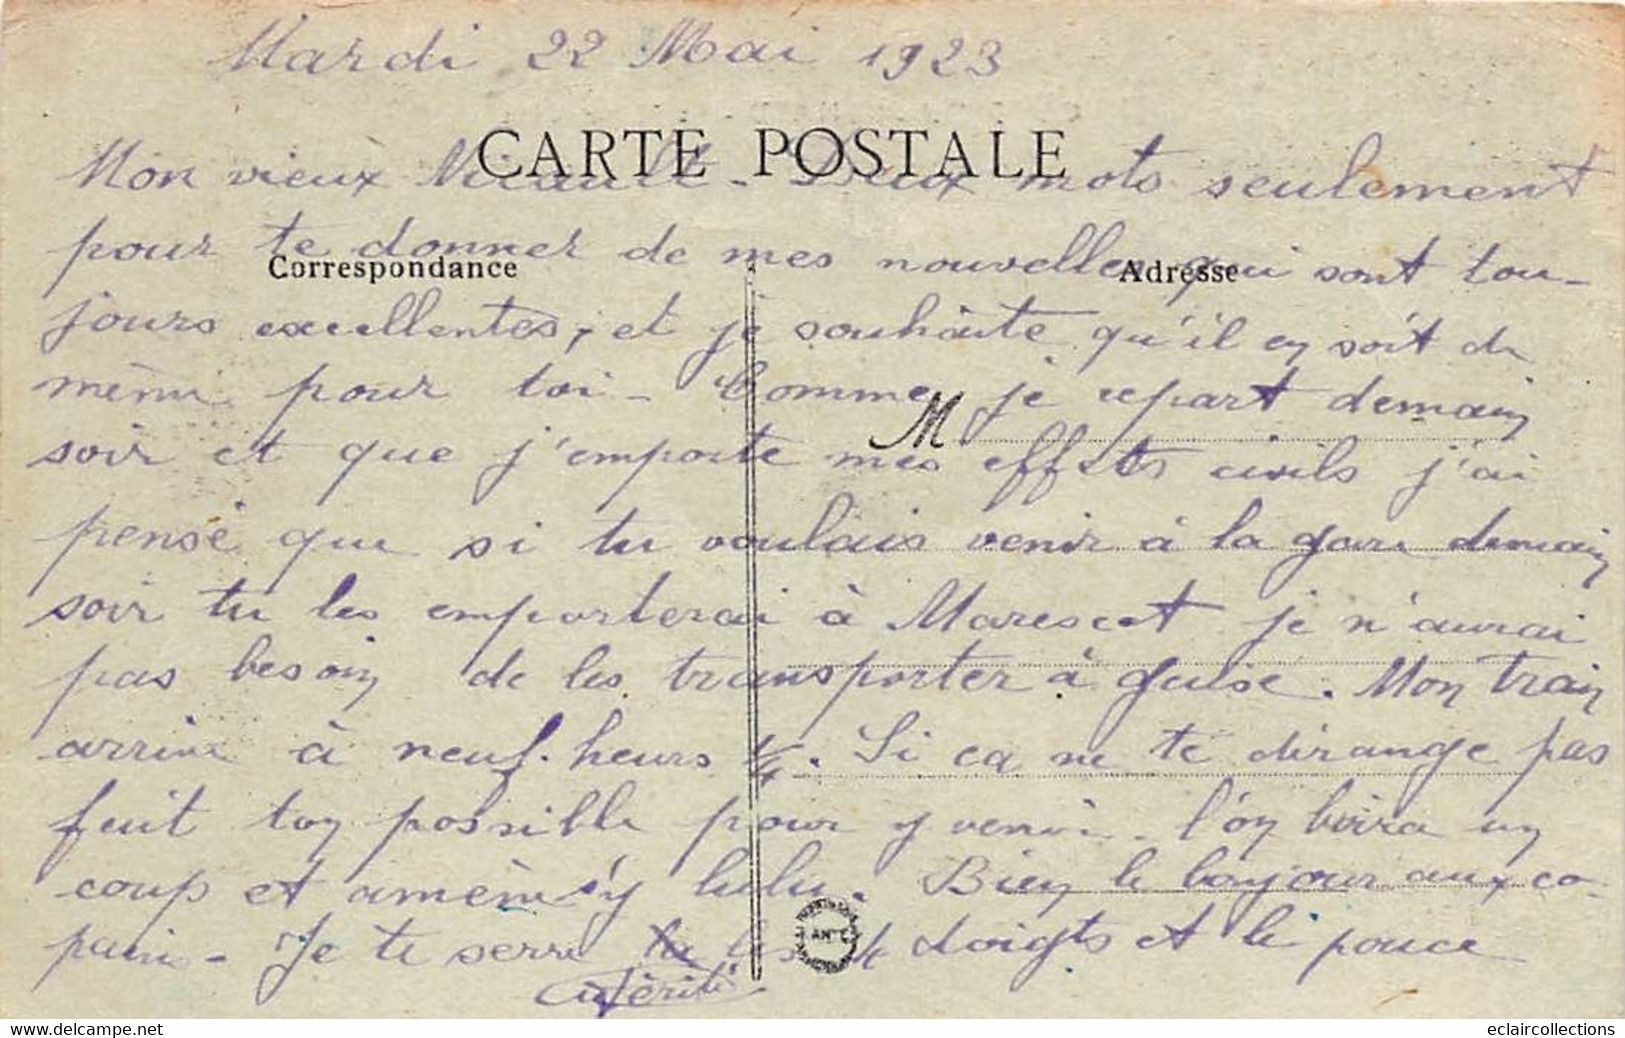 Mardi 22 Mai 1923
CARTE POSTALE
Mon vieux Nicault - Deux mots seulement
pour te donner de mes nouvelles qui sont tou-
Correspondance Adresse
jours excellentes, et je souhaite qu'il en soit de
même pour toi - Comme je repart demain
M
soir et que j'emporte mes effets civils j'ai
pensé que si tu voulais venir à la gare demain
soir tu les emporterai à Marescot je n'aurai
pas besoin de les transporter à Guise. Mon train
arrive à neuf heurs 1/4. Si ca ne te dérange pas
fait ton possible pour y venir - l'on boira un
coup et amènes'y lulu. Bien le bonjour aux co-
pain - Je te serre les 4 doigts et le pouce
NANTES
eclaircollections
www.delcampe.net